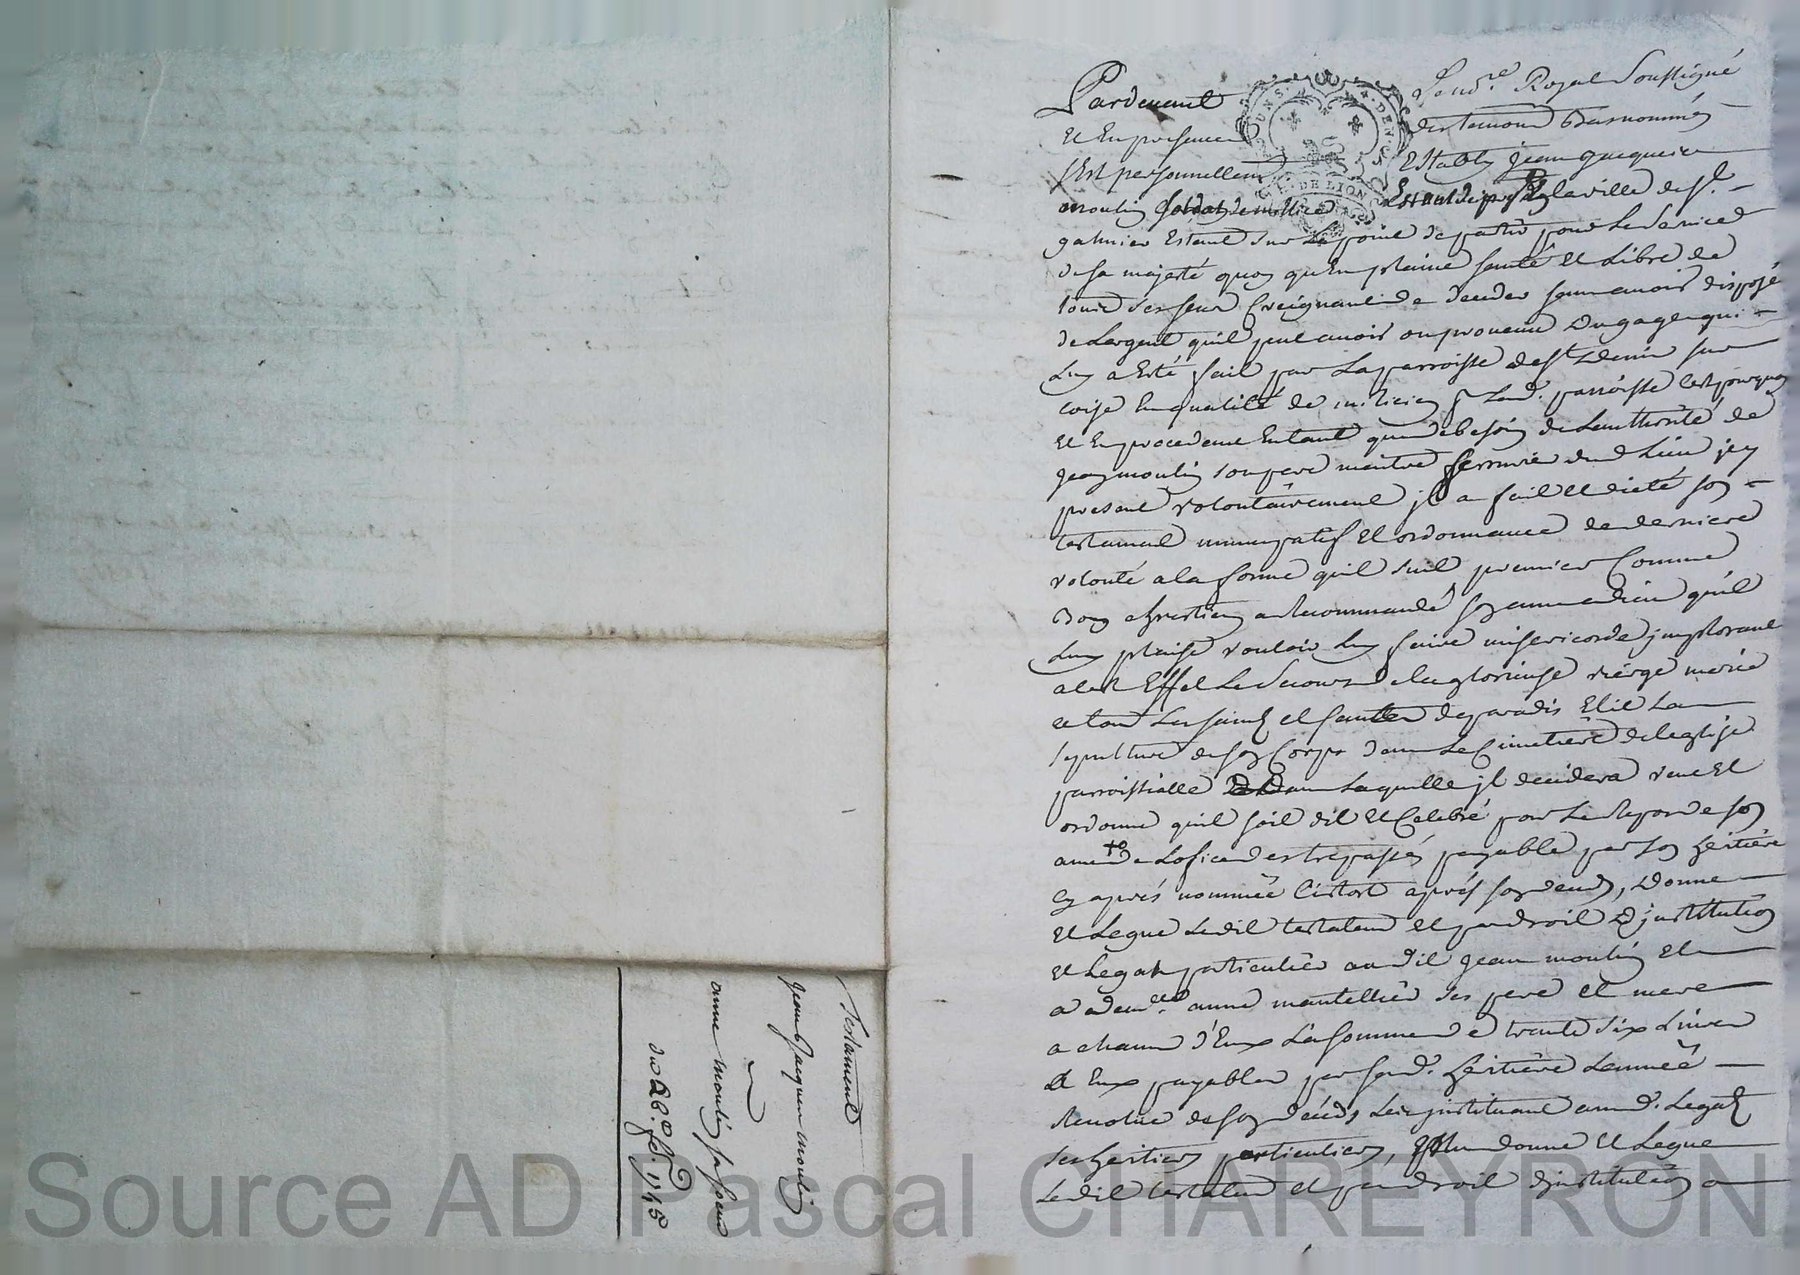 Testament
jean jacques moulin
a
anne moulin sa soeur
du 26e. fev. 1745
Pardevant Le no.re Royal Soussigné
Et En presence des temoins Basnommés
S'Est personnellem Estably jean jacques
moulin soldat de milice de la ville de St.
galmier Estant sur Le point de partir pour Le Service
de sa majesté quoy qu'En plaine santé Et Libre de
tous ses sens Creignant de deceder sans avoir disposé
de Largent quil peut avoir ou provenu Du gage qui
Luy a Esté fait par La parroisse de St Denis sur
coise En qualité de milicien pr Lad. parroisse c'est pourquoy
Et En procedant Entant que de besoin de Lauthorité de
jean moulin son pere maitre dud Lieu jcy
present volontairement jl a fait Et dicté son
testament nuncupatif Et ordonnance de derniere
volonté a la forme quil suit premier Comme
Bon chrestien a Recommandé son ame a dieu quil
Luy plaise vouloir Luy faire misericorde jmplorant
a cet Effet Le Secours de La glorieuse vierge marie
et tous Les saints et saintes de paradis Elit La
sepulture de son Corps dans Le Cimetiere de leglise
parroissialle Dans Laquelle jl decedera veut Et
ordonne quil soit dit Et Celebré pour Le Repos de son
ame Lofice des trepassés payable par son heritiere
cy aprés nommée aprés son deceds, Donne
Et Legue Ledit testateur et par droit D'institution
Et Legat particulier audit jean moulin Et
a dem.lle anne mantellier ses pere et mere
a chacun d'Eux La somme de trente six Livres
a Eux payables par sad. heritiere Lannée
Revolue de son deceds Les jnstituant aud. Legat
ses heritiers particuliers, donne Et Legue
Ledit testateur et par droit d'institution a
Source AD Pascal CHAREYRON